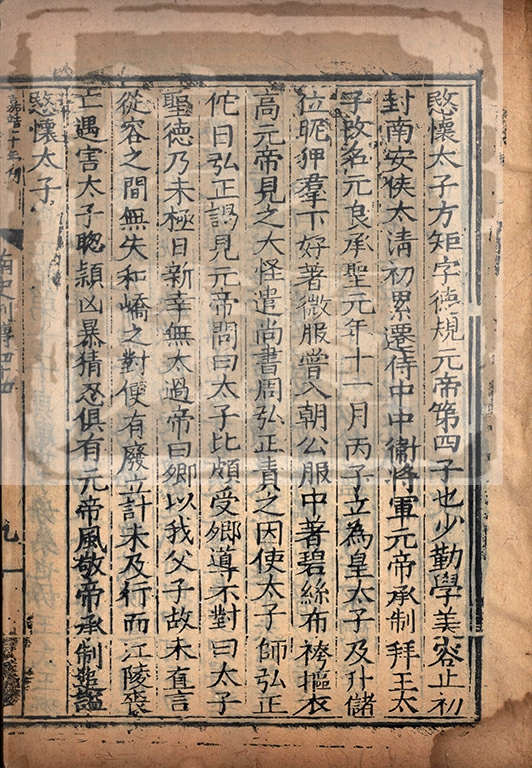 愍懷太子方矩字德規元帝第四子也少勤學美容止初
封南安侯太清初累遷侍中中衛將軍元帝承制拜王太
子改名元良承聖元年十一月丙子立為皇太子及升儲
位昵狎羣下好著微服嘗入朝公服中著碧絲布袴摳衣
高元帝見之大怪遣尚書周弘正責之因使太子師弘正
佗日弘正謁見元帝問曰太子比頗受卿導不對曰太子
聖德乃未極日新幸無太過帝曰卿以我父子故未直言
從容之間無失和嶠之對便有廢立計未及行而江陵喪
亡遇害太子聰穎凶暴猜忍俱有元帝風敬帝承制追謚
愍懷太子
南史列傳四十四
九